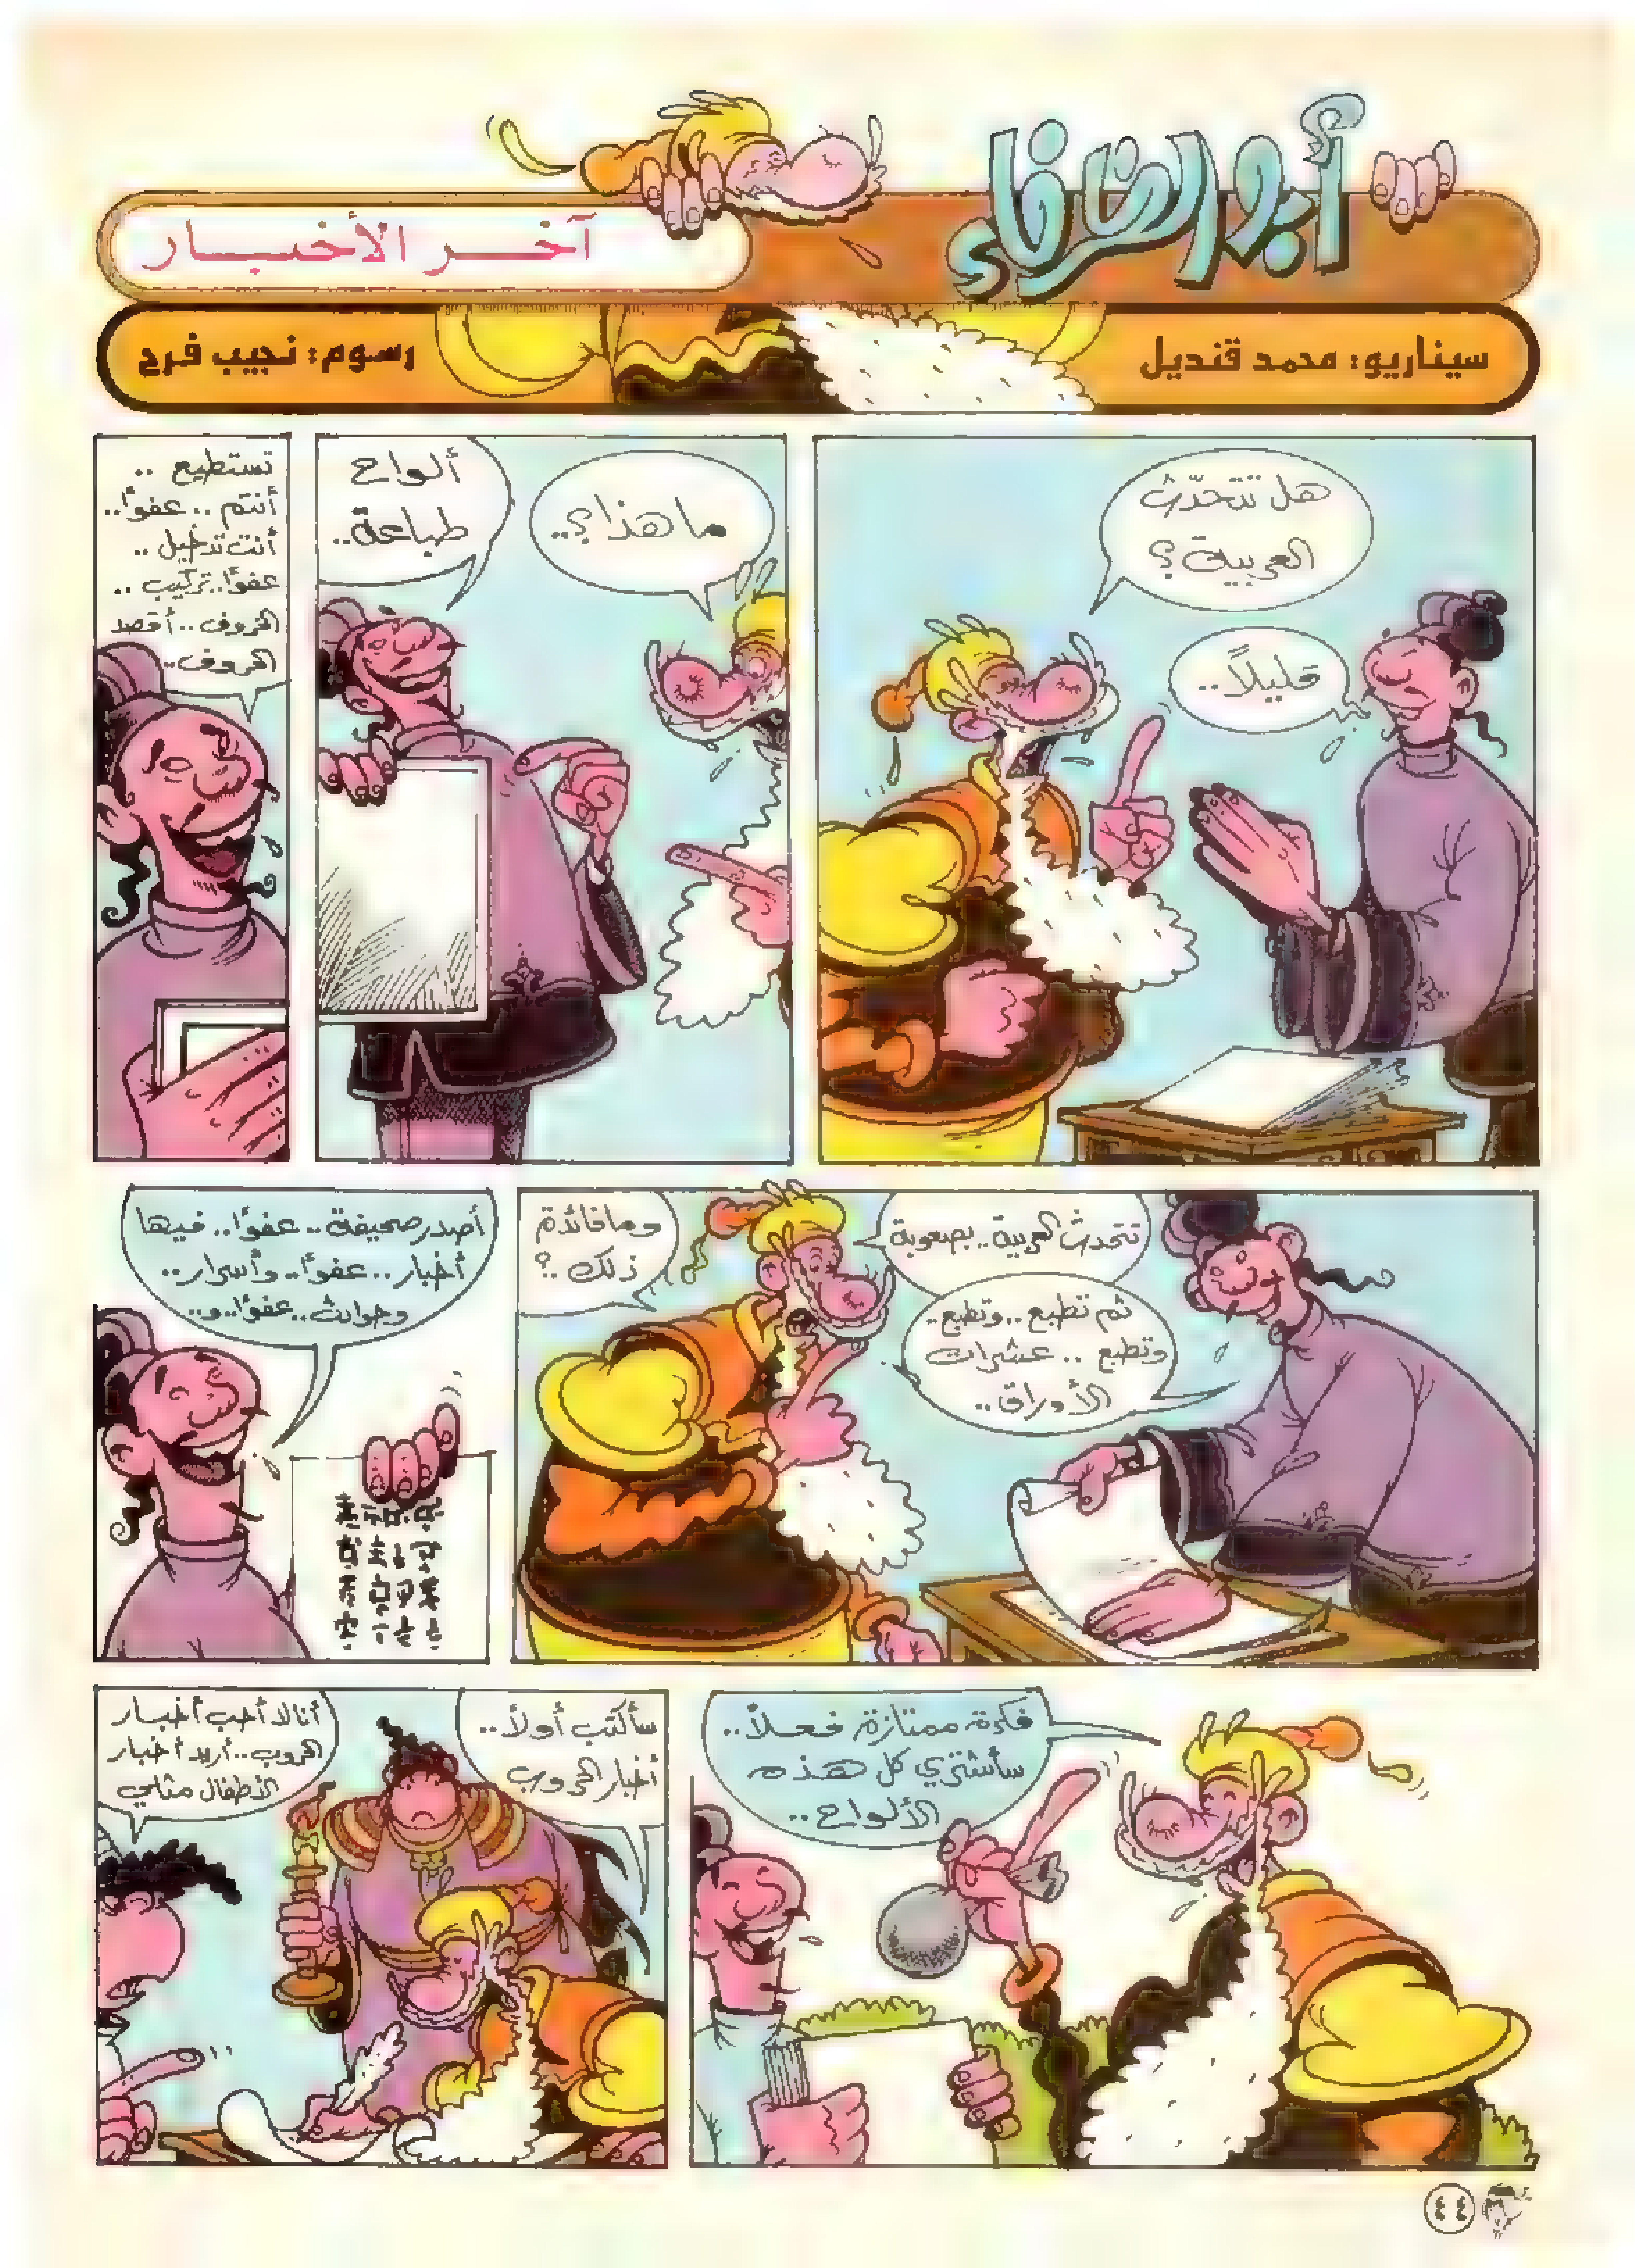 أبو الظرفاء
آخر الأخبار
سيناريو: محمد قنديل
رسوم: نجيب فرح
هل تتحدّث
العربية؟
قليلاً..
ما هذا؟..
ألواح
طباعة..
تستطيع ..
أنتم .. عفوًا..
أنت تدخيل ..
عفوًا.. تركيب ..
الخروف.. أقصد
الحروف..
تتحدث العربية.. بصعوبة
ثم تطبع .. وتطبع..
وتطبع .. عشرات
الأوراق..
وما فائدة
ذلك ؟.
أصدر صحيفة.. عفوًا.. فيها
أخبار.. عفوًا.. وأسرار..
وحوادث.. عفوًا.. و..
فكرة ممتازة فعلاً..
سأشتري كل هذه
الألواح..
سأكتب أولاً..
أخبار الحروب
أنا لا أحب أخبار
الحروب.. أريد أخبار
الأطفال مثلي
٤٤